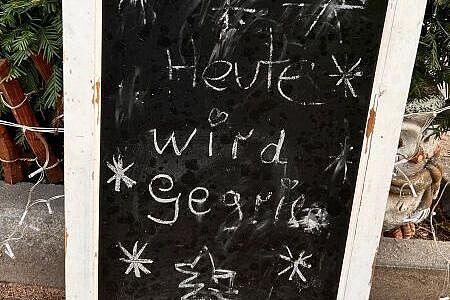 Heute
wird
gegrillt